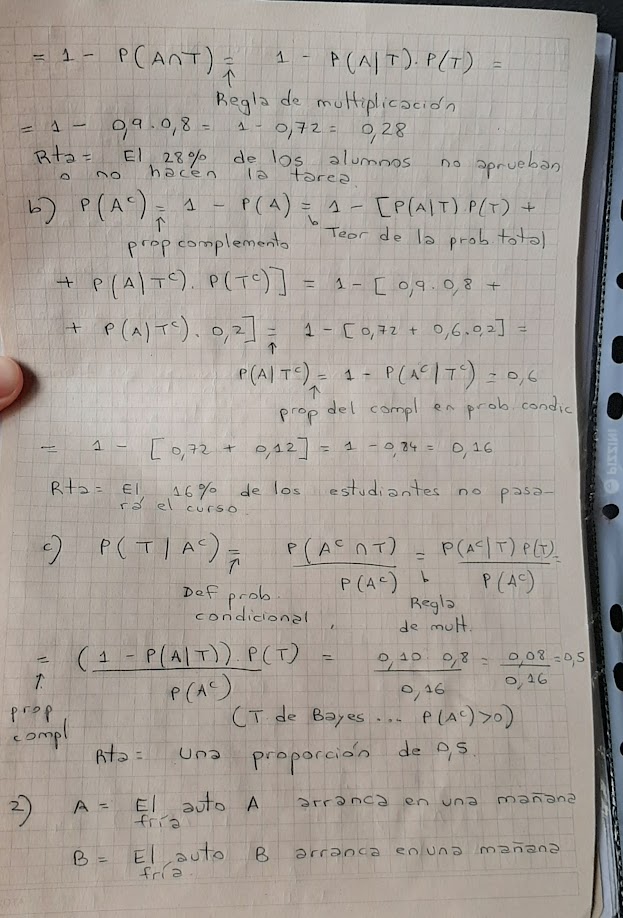 = 1 - P(A∩T) = 1 - P(A|T). P(T) =
↑
Regla de multiplicación
= 1 - 0,9 . 0,8 = 1 - 0,72 = 0,28
Rta = El 28% de los alumnos no aprueban
o no hacen la tarea.
b) P(Aᶜ) = 1 - P(A) = 1 - [P(A|T) P(T) +
↑ prop complemento Teor de la prob total
+ P(A|Tᶜ). P(Tᶜ)] = 1 - [0,9.0,8 +
+ P(A|Tᶜ). 0,2] = 1 - [0,72 + 0,6.0,2] =
↑
P(A|Tᶜ) = 1 - P(Aᶜ|Tᶜ) = 0,6
↑
prop del compl en prob. condic
= 1 - [0,72 + 0,12] = 1 - 0,84 = 0,16
Rta = El 16% de los estudiantes no pasa-
rá el curso.
c) P(T|Aᶜ) = P(Aᶜ∩T) = P(Aᶜ|T) P(T) =
↑ P(Aᶜ) P(Aᶜ)
Def prob. condicional Regla de mult.
= (1 - P(A|T)). P(T) = 0,10 0,8 = 0,08 = 0,5
↑ P(Aᶜ) 0,16 0,16
prop compl (T. de Bayes ... P(Aᶜ)>0)
Rta = Una proporción de 0,5.
2) A = El auto A arranca en una mañana
fría
B = El auto B arranca en una mañana
fría.
PIZZINI